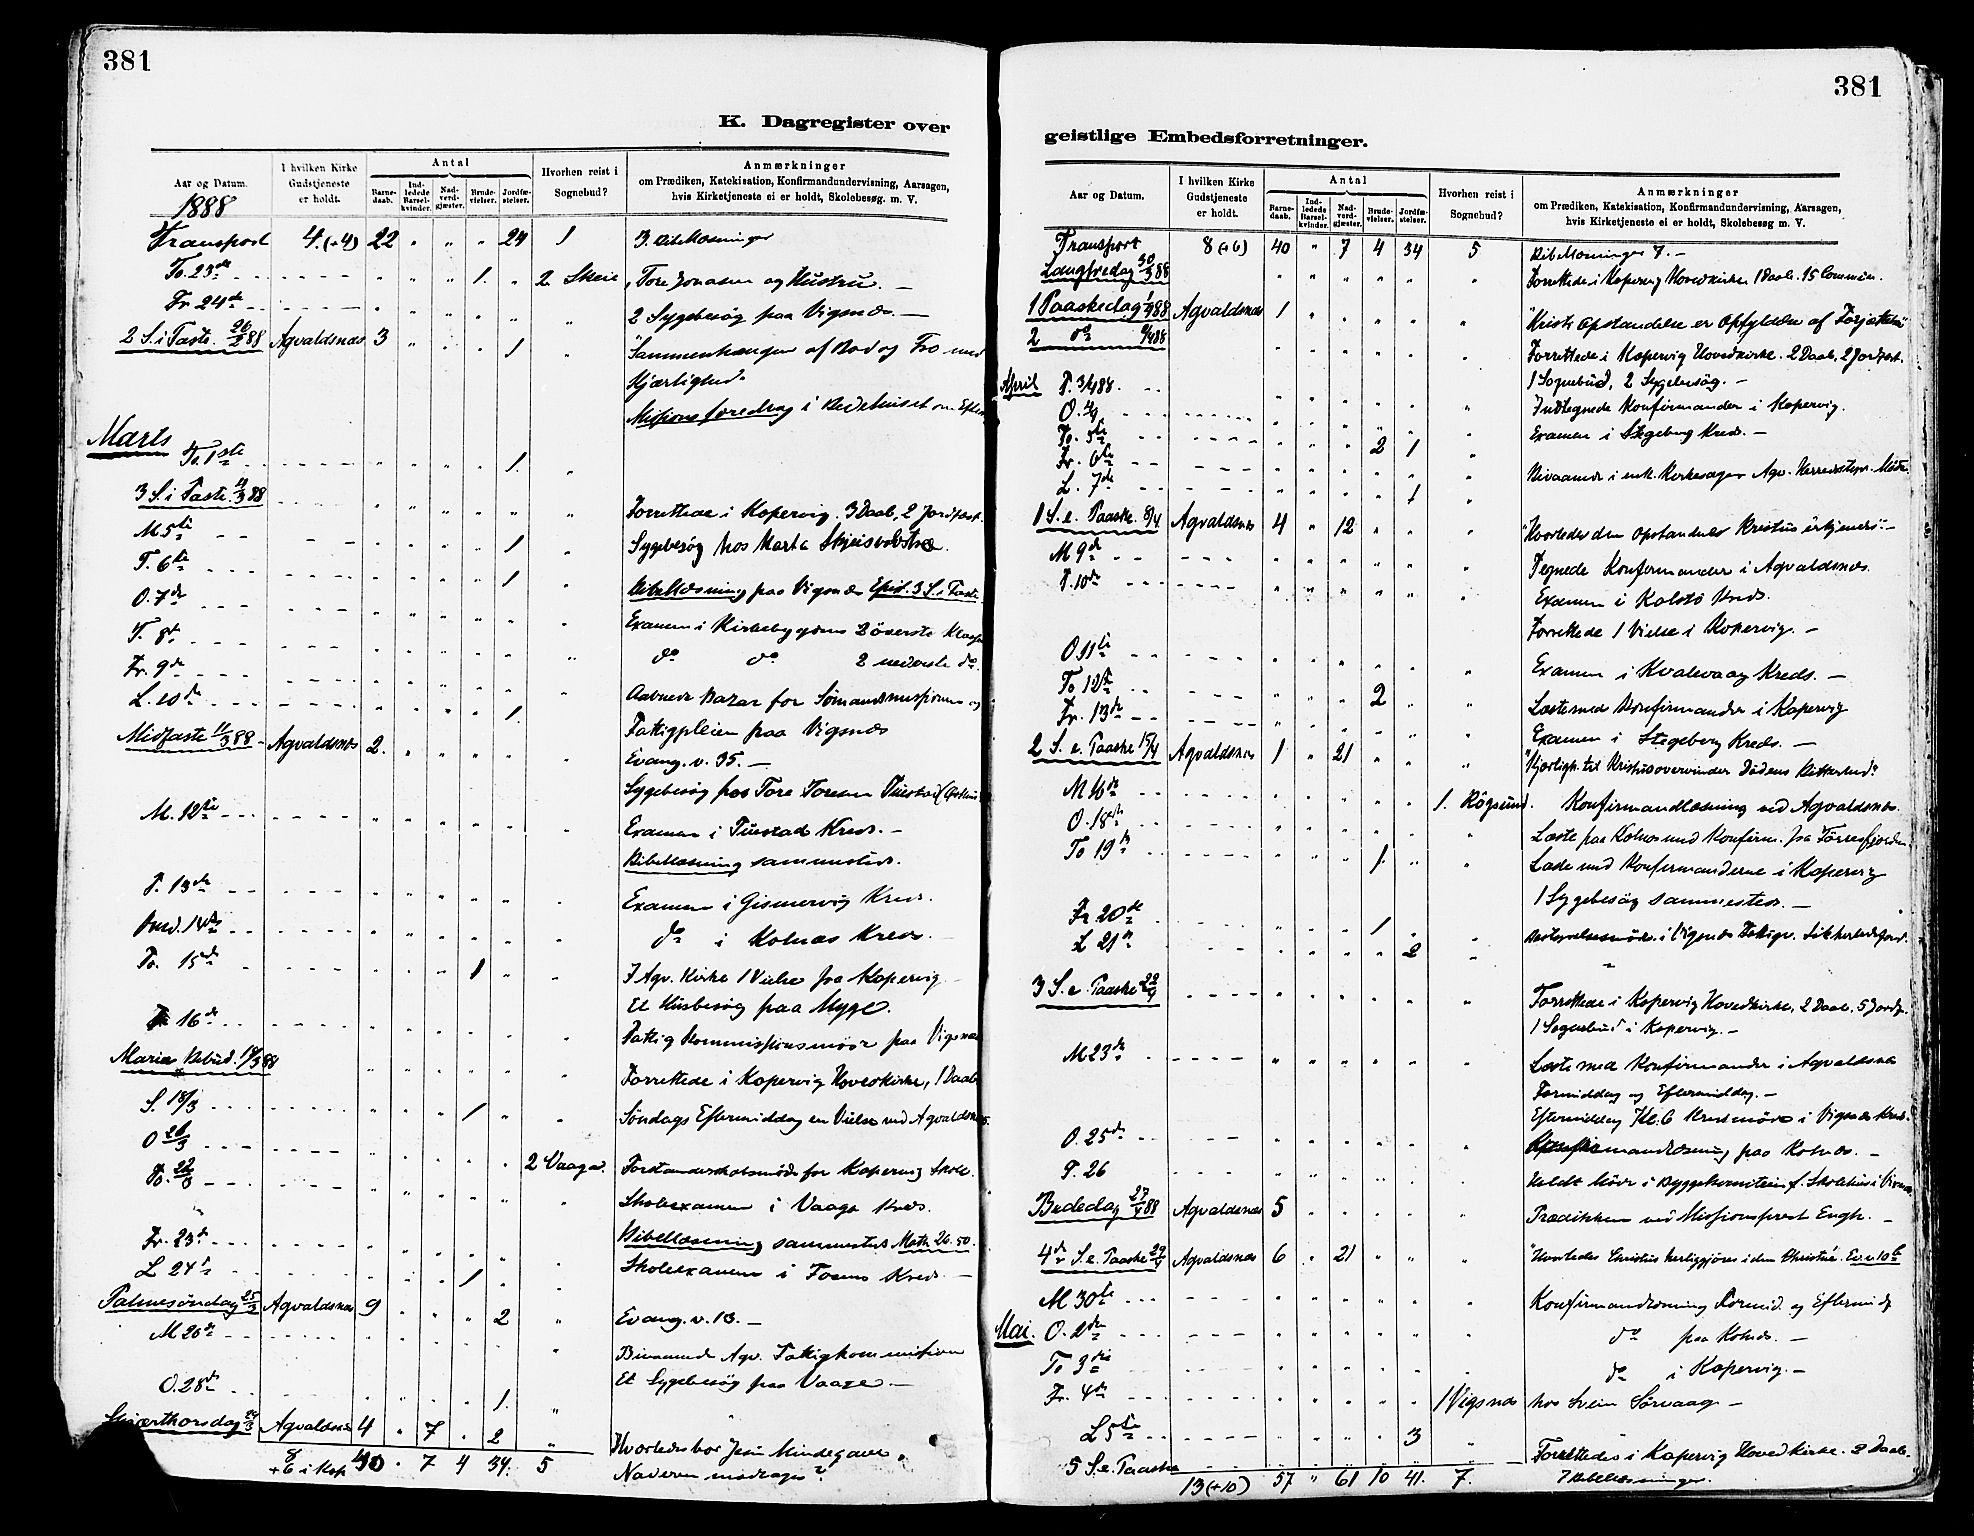 381
K. Dagregister over
Aar og Datum.
1888
I hvilken Kirke Gudstjeneste er holdt.
Antal
Barne-daab.
Ind-ledede Barsel-kvinder.
Nad-verd-gjæster.
Brude-vielser.
Jordfæ-stelser.
Hvorhen reist i Sognebud?
Anmærkninger
om Prædiken, Katekisation, Konfirmandundervisning, Aarsagen,
hvis Kirketjeneste ei er holdt, Skolebesøg. m. V.
Transport 4.(+4) 22 " " " 24 1 3 Bibellæsninger
To. 23de 1. 2 Skeie, Tore Jonasen og Hustru. —
Fr. 24de 2 Sygebesøg paa Vigsnæs. —
2 S. i Faste. 26/2 88 Agvaldsnæs 3 1 "Sammenhængen af Bod og Tro med
Kjærlighed.
Missionsforedrag i Bedehuset om Efterm
Marts
To. 1ste 1.
3 S. i Faste. 4/3 88 Forrettede i Kopervig. 3 Daab, 2 Jordfæst.
M. 5te 1 Sygebesøg hos Marta
T. 6te 1 Bibellæsning paa Vigsnæs Epist. 3 S. i Faste
O. 7de Examen i Kirkebygdens 2 överste Klasser
T. 8de do do 2 nederste do.
Fr. 9de
L. 10de 1. Aabnede Bazar for Sömandsmissionen og
Fattigpleien paa Vigsnæs
Midfaste 11/3 88 - Agvaldsnæs 2. Evang. v. 35. —
Sygebesøg hos Tore Toresen
M. 12te Examen i Tuastad Kreds. —
Bibellæsning sammesteds.
T. 13de Examen i Gismervig Kreds.
Ond. 14de do i Kolnæs Kreds
To. 15de 1 I Agv. Kirke 1 Vielse fra Kopervig
Et Husbesøg paa Myge.
16de Fattig Kommissionsmöde paa Vigsnæs
Mariæ Bebud. 18/3 88 Forrettede i Kopervig Hovedkirke, 1 Daab
S. 18/3 1 Søndags Eftermiddag en Vielse ved Agvaldsnæs.
O 2 Vaage. Forstanderskabsmöde for Kopervig Skole.
To. 22/3 Skoleexamen i Vaage Kreds.
Fr. 23de Bibellæsning sammesteds Math 26. 50.
L 24de 1 Skoleexamen i Fosens Kreds —
Palmesöndag 25/3 Agvaldsnæs 9 2 Evang. v. 13. —
M 26de Bivaanede Agv. Fattigkommission
O. 28de 1. Et Sygebesøg paa Vaage. —
Skjærthorsdag 29/3 Agvaldsnæs 4 7 2 Hvorledes bor Jesu Mindegave,
Nadveren modtages?
8 +6 i Kop 40 " 7 4 34. 5
381
geistlige Embedsforretninger.
Aar og Datum.
I hvilken Kirke Gudstjeneste er holdt.
Antal
Barne-daab.
Ind-ledede Barsel-kvinder.
Nad-verd-gjæster.
Brude-vielser.
Jordfæ-stelser.
Hvorhen reist i Sognebud?
Anmærkninger
om Prædiken, Katekisation, Konfirmandundervisning, Aarsagen,
hvis Kirketjeneste ei er holdt, Skolebesøg m. V.
Transport 8 (+6) 40 " 7 4 34 5 Bibellæsninger 7. —
Langfredag 30/3 88 Forrettede i Kopervig Hovedkirke 1 Daab. 15 Commun.
1 Paaskedag 1/4 88 Agvaldsnæs 1 "Kristi Opstandelse er Opfyldelse af Forjættelsen"
2 do 2/4 88 Forrettede i Kopervig Hovedkirke. 2 Daab, 2 Jordfæst.
1 Sognebud, 2 Sygebesøg. —
April T. 3/4 88. Indtegnede Konfirmander i Kopervig.
O. 4/4 Examen i Stegeberg Kreds. —
To. 5te 2 1
Fr. 6te Bivaanede i enk. Kirkesager Agv. Herredsstyr. Möde.
L. 7de 1
1 S. e. Paaske. 8/4 Agvaldsnæs 4 " 12 "Hvorledes den opstandne Kristus erkjendes". —
M 9de Tegnede Konfirmander i Agvaldsnæs.
T. 10de Examen i Kolstö Kreds.
Forrettede 1 Vielse i Kopervig. —
O. 11te Examen i Kvalevaag Kreds. —
To 12te 2 Læste med Konfirmander i Kopervig
Fr. 13de Examen i Stegeberg Kreds. —
2 S. e. Paaske 15/4 Agvaldsnæs 1 " 21 "Kjærligh. til Kristus overvinder Dödens Bitterhed"
M 16de 1. Rögsund. Konfirmandlæsning ved Agvaldsnæs.
O. 18de Læste paa Kolnæs med Konfirm. fra Förresfjorden
To 19de 1. Læste med Konfirmanderne i Kopervig
1 Sygebesøg sammesteds. —
Fr 20de 1 Bestyrelsesmöde i Vigsnæs Fattigv. Sikkerhedsfond.
L 21de 2
3 S. e. Paaske 22/4 Forrettede i Kopervig Hovedkirke, 2 Daab, 5 Jordf.
1 Sognebud i Kopervig. —
M 23de Læste med Konfirmander i Agvaldsnæs
Formiddag og Eftermiddag. —
Eftermiddag Kl. 6 Kredsmöde i Vigsnæs Kreds.
O. 25de Konfirmandlæsning paa Kolnæs. —
T. 26 Holdt Möde i Byggekomiteen f. Skolehus i Vigsnæs
Bededag 27/4 88 Agvaldsnæs 5 Prædikken ved Missionsprest Engh. —
4de S. e. Paaske 29/4 Agvaldsnæs 6 " 21 "Hvorledes Christus herliggjöres i den Christne. Ev. v 10
M 30te Konfirmandlæsning Formid. og Eftermidg
Mai. O. 2den do paa Kolnæs. —
To 3die do i Kopervig. —
Fr. 4de 1 Vigsnæs hos Svein Sörvaag —
L 5te 3
5 S. e. Paaske Forrettedes i Kopervig Hovedkirke. 2 Daab.
13 (+10) 57 " 61 10 41. 7. 7 Bibellæsninger.